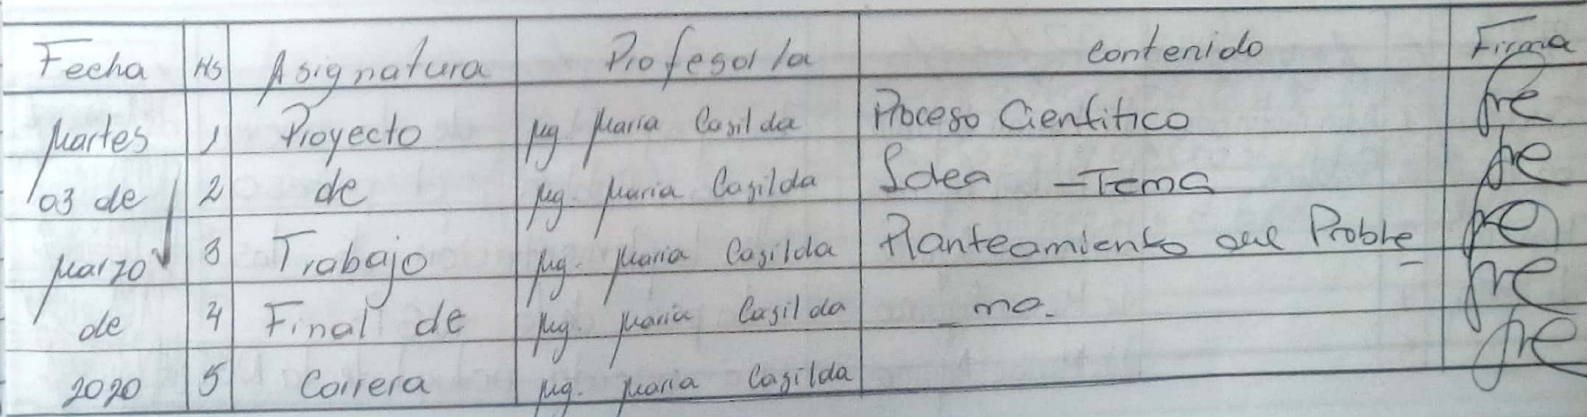 Fecha Hs Asignatura Profesor/a contenido Firma
Martes 1 Proyecto Mg. Maria Casilda Proceso Cientifico
03 de 2 de Mg. Maria Casilda Idea - Tema
Marzo 3 Trabajo Mg. Maria Casilda Planteamiento del Proble_
de 4 Final de Mg. Maria Casilda _ma.
2020 5 Carrera Mg. Maria Casilda